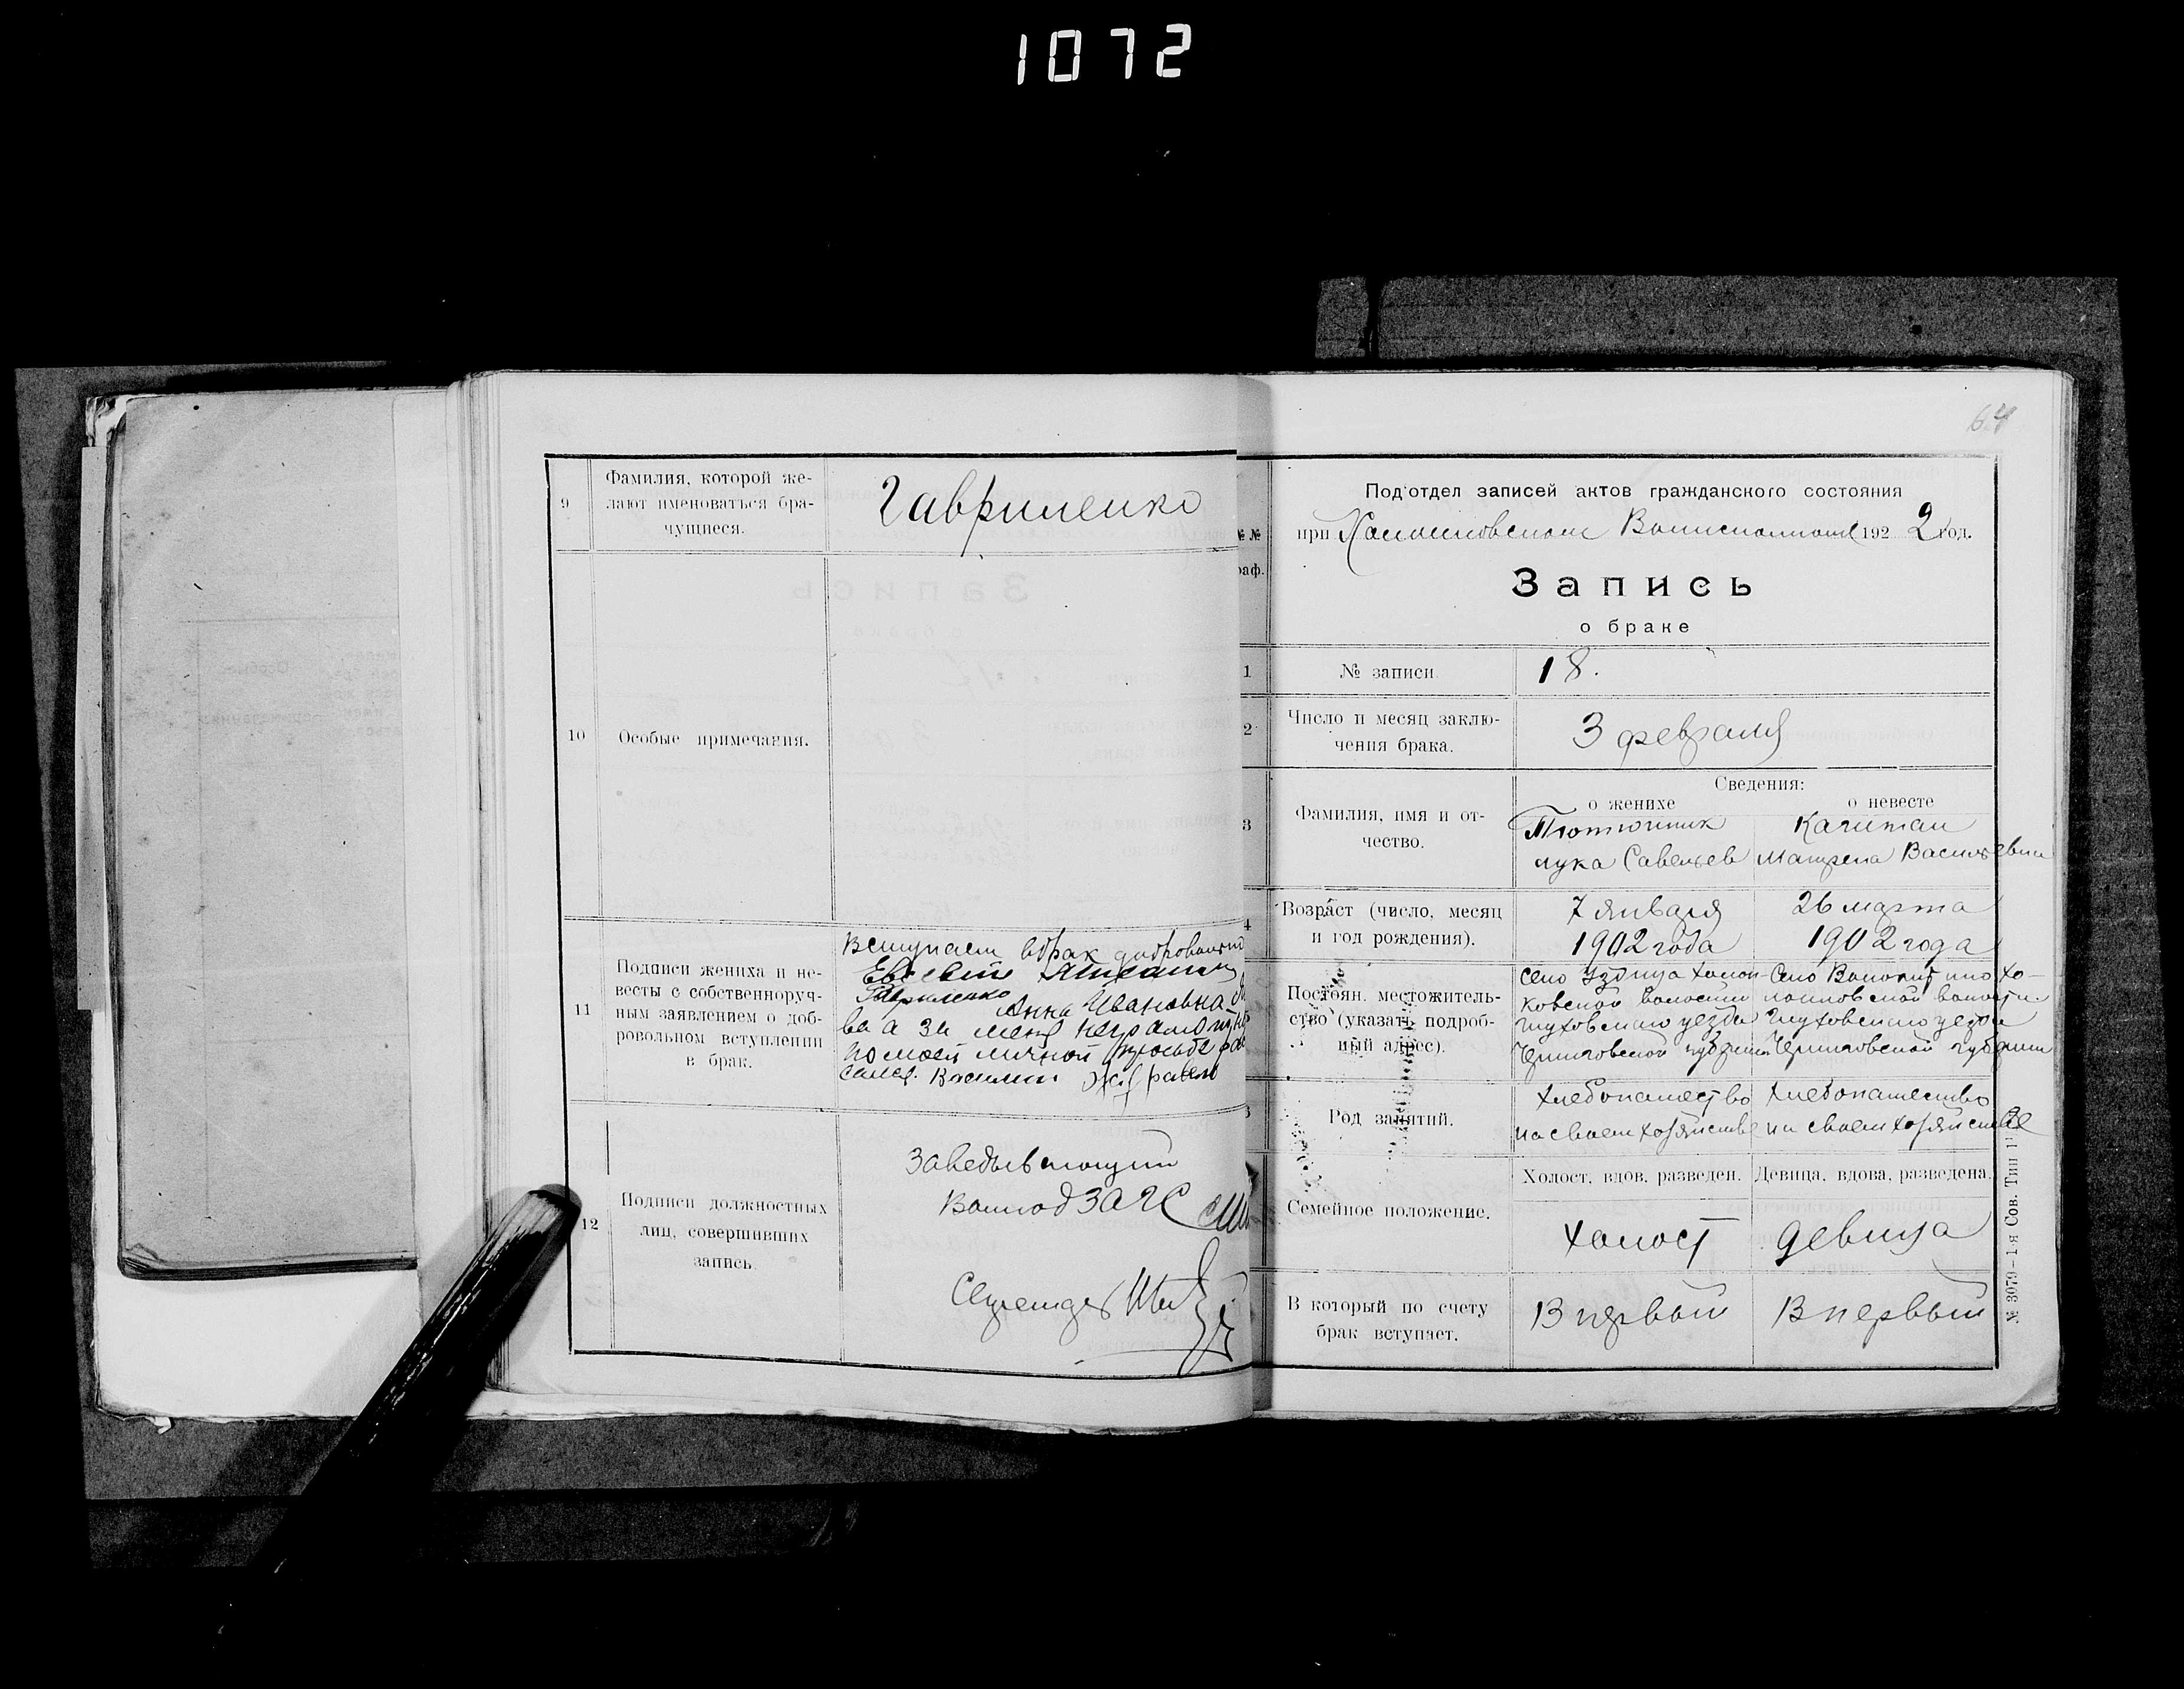 1072
9
Фамилия, которой же-
лают именоваться бра-
чущиеся.
Гавриленко
10
Особые примечания.
11
Подписи жениха и не-
весты с собственноруч-
ным заявлением о доб-
ровольном вступлении
в брак.
Вступаем в брак
Гавриленко
Анна Ивановна
ва а за меня неграмотн
по моей личной просьбе
Василий
12
Подписи должностных
лиц, совершивших
запись.
Заведывающий
ЗАГС
64
№№
раф.
Подотдел записей актов гражданского состояния
при 1922 год.
Запись
о браке
1
№ записи
18.
2
Число и месяц заклю-
чения брака.
3 февраля
3
Фамилия, имя и от-
чество.
Сведения:
о женихе
о невесте
Тютюнник
Лука Савельев
Качитан
Матрена Васильевна
4
Возраст (число, месяц
и год рождения).
7 января
1902 года
26 марта
1902 года
Постоян. местожитель-
ство (указать подроб-
ный адрес).
село Уздица Холоп-
ковской волости
Глуховского уезда
Черниговской губернии
Село Хо-
волости
Глуховского уезда
Черниговской губернии
Род занятий.
Хлебопашество
на своем хозяйстве
Хлебопашество
на своем хозяйстве
Семейное положение.
Холост, вдов, разведен.
Девица, вдова, разведена.
Холост
девица
В который по счету
брак вступает.
В первый
В первый
№ 3079 – 1-я Сов. Тип